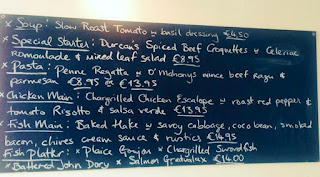 * Soup: Slow Roast Tomato w basil dressing €4.50
* Special Starter: Duncan's Spiced Beef Croquettes w Celeriac
Romoulade & mixed leaf salad €8.95
* Pasta: Penne Regatta w O'Mahonys mince beef ragu &
parmesan €8.95 or €13.95
* Chicken Main: Chargrilled Chicken Escalope w roast red pepper &
tomato Risotto & salsa verde €13.95
* Fish Main: Baked Hake w savoy cabbage, coco bean, smoked
bacon, chives cream sauce & rustics €14.95
Fish Platter: * Plaice Goujon * Chargrilled Swordfish
* Battered John Dory * Salmon Gravlax €14.00